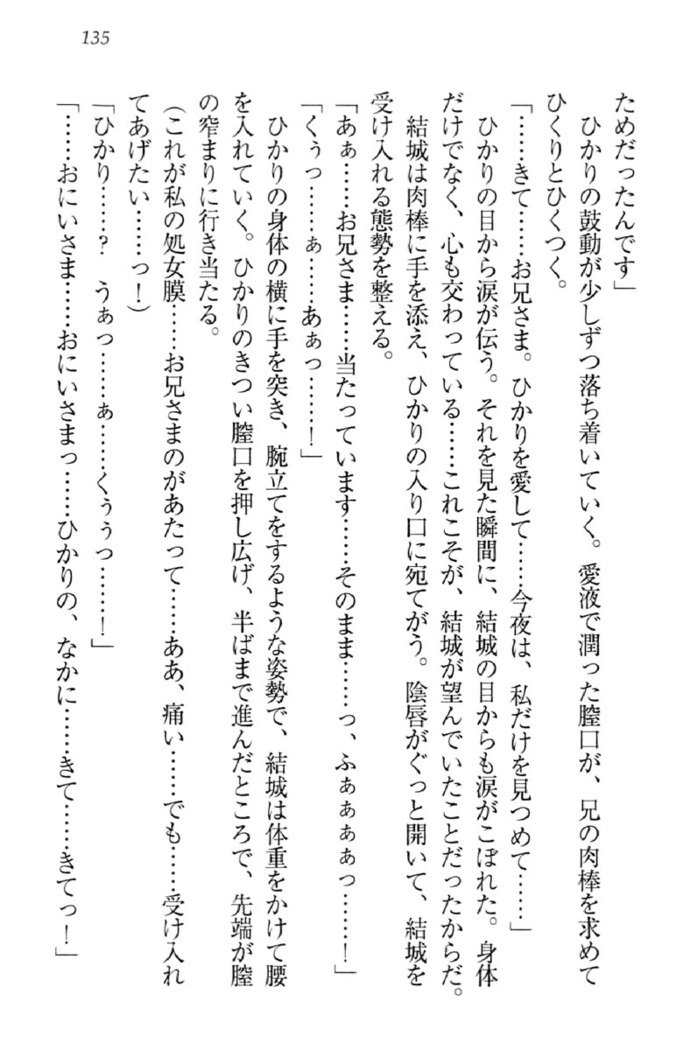 135
ためだったんです」
ひかりの鼓動が少しずつ落ち着いていく。愛液で潤った膣口が、兄の肉棒を求めて
ひくりとひくつく。
「……きて……お兄さま。ひかりを愛して……今夜は、私だけを見つめて……」
ひかりの目から涙が伝う。それを見た瞬間に、結城の目からも涙がこぼれた。身体
だけでなく、心も交わっている……これこそが、結城が望んでいたことだったからだ。
結城は肉棒に手を添え、ひかりの入り口に宛てがう。陰唇がぐっと開いて、結城を
受け入れる態勢を整える。
「あぁ……お兄さま……当たっています……そのまま……っ、ふぁぁぁぁっ……！」
「くぅっ……ぁ……あぁっ……！」
ひかりの身体の横に手を突き、腕立てをするような姿勢で、結城は体重をかけて腰
を入れていく。ひかりのきつい膣口を押し広げ、半ばまで進んだところで、先端が膣
の窄まりに行き当たる。
（これが私の処女膜……お兄さまのがあたって……ああ、痛い……でも……受け入れ
てあげたい……っ！）
「ひかり……？　うぁっ……ぁ……くぅぅっ……！」
「……おにいさま……おにいさまっ……ひかりの、なかに……きて……きてっ！」